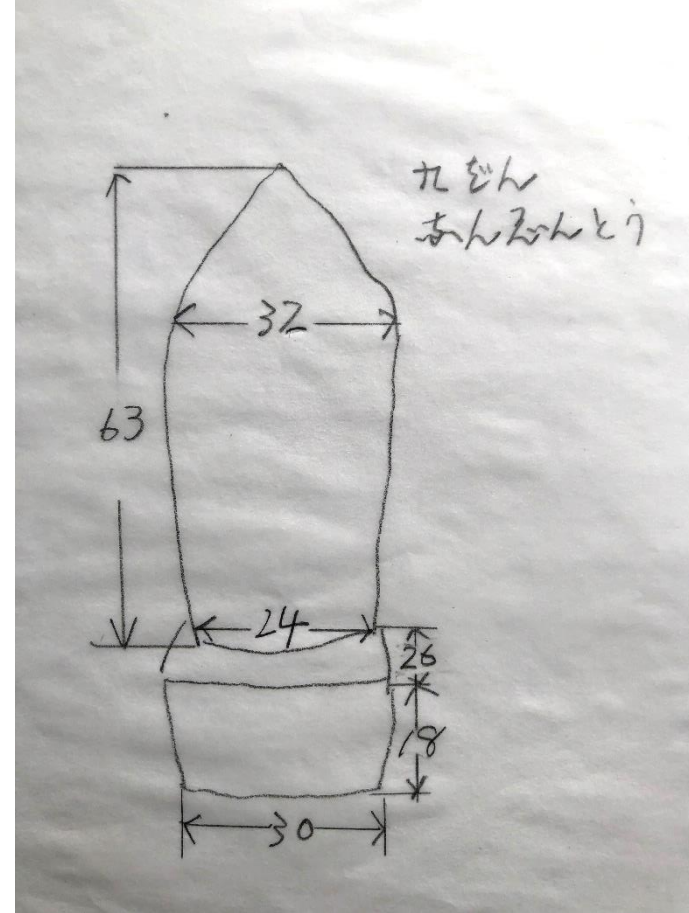 九だん
あんどんとう
32
63
24
26
18
30